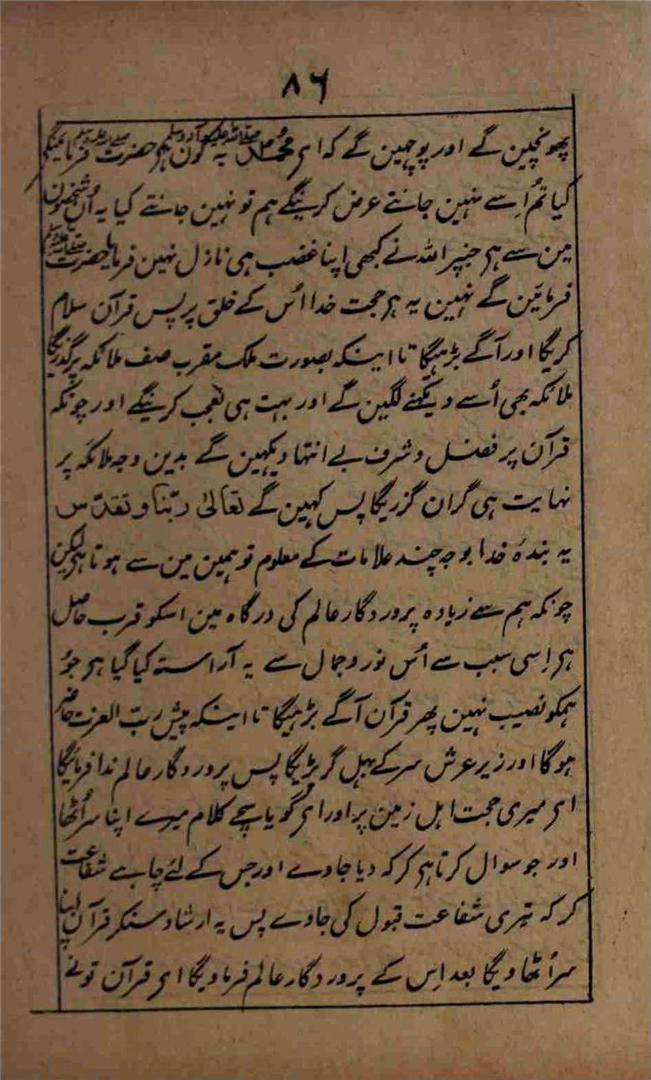 ۸۶
پھونچین گے اور پوچھین گے کہ ای محمد صلی اللہ علیہ وآلہ وسلم یہ کون ہی حضرت صلی اللہ علیہ وسلم فرمائینگے
کیا تم اُسے نہین جانتے عرض کرینگے ہم تو نہین جانتے کیا یہ اُن شخصون
مین سے ہی جنپر اللہ نے کبھی اپنا غضب ہی نازل نہین فرمایا حضرت صلی اللہ علیہ وسلم
فرمائین گے نہین یہ ہی حجت خدا اُس کے خلق پر پس قرآن سلام
کریگا اور آگے بڑہیگا تا اینکہ بصورت ملک مقرب صف ملائکہ پر گذریگا
ملائکہ بھی اُسے دیکھنے لگین گے اور بہت ہی تعجب کرینگے اور چونکہ
قرآن پر فضل و شرف بے انتہا دیکہین گے بدین وجہ ملائکہ پر
نہایت ہی گران گزریگا پس کہین گے تعالیٰ ربّنا و تقدّس
یہ بندۂ خدا بوجہ چند علامات کے معلوم تو ہمین مین سے ہوتا ہی لیکن
چونکہ ہم سے زیادہ پروردگار عالم کی درگاہ مین اسکو قرب حاصل
ہی اِسی سبب سے اُس نور و جمال سے یہ آراستہ کیا گیا ہی جو
ہمکو نصیب نہین پھر قرآن آگے بڑہیگا تا اینکہ پیش ربّ العزت حاضر
ہوگا اور زیر عرش سر کے بہل گر پڑیگا پس پروردگار عالم ندا فرمائیگا
ای میری حجت اہل زمین پر اور ای گویا سچے کلام میرے اپنا سر اُٹھا
اور جو سوال کرتا ہی کر کہ دیا جاوے اور جس کے لئے چاہے شفاعت
کر کہ تیری شفاعت قبول کی جاوے پس یہ ارشاد سنکر قرآن اپنا
سر اُٹھاویگا بعد اِس کے پروردگار عالم فرماویگا ای قرآن تونے